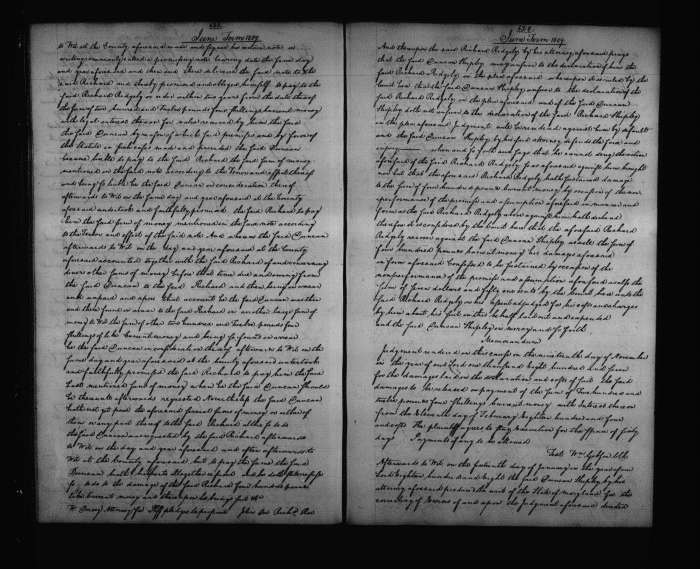 June Term 1809
to Wit at the County aforesaid made and signed his certain note in
writing commonly called a promissory note bearing date the same day
and year aforesaid and then and there delivered the said note to the
said Richard and thereby promised and obliged himself to pay to the
said Richard Ridgely or order within two years from the date thereof
the sum of two hundred and Twelve pounds four shillings current money
with legal interest thereon for value received by him the said
the said Duncan by reason of which said premises and by force of
the Statute in such case made and provided the said Duncan
became liable to pay to the said Richard the said sum of money
mentioned in the said note according to the Tenor and effect thereof
and being so liable he the said Duncan in consideration thereof
afterwards to Wit on the same day and year aforesaid at the County
aforesaid undertook and faithfully promised the said Richard to pay
him the said sum of money mentioned in the said note according
to the Tenor and effect of the said note And whereas the said Duncan
afterwards to Wit on the day and year aforesaid at the County
aforesaid accounted together with the said Richard of and concerning
divers other sums of money before that time due and owing from
the said Duncan to the said Richard and then being in arrear
and unpaid and upon that account he the said Duncan was then
and there found in arrear to the said Richard in another large sum of
money to Wit the sum of other two hundred and Twelve pounds four
shillings of like current money and being so found in arrear
he the said Duncan in consideration thereof afterwards to Wit on the
same day and year aforesaid at the County aforesaid undertook
and faithfully promised the said Richard to pay him the said
last mentioned sum of money when he the said Duncan should
be thereunto afterwards requested Nevertheless the said Duncan
hath not yet paid the aforesaid several sums of money or either of
them or any part thereof to the said Richard altho so to do
the said Duncan was requested by the said Richard afterwards
to Wit on the day and year aforesaid and often afterwards to
Wit at the County aforesaid but to pay the same the said
Duncan hath hitherto altogether refused and he doth still refuse
to the damage of the said Richard four hundred pounds
current money and therefore he brings suit &c
W. Dorsey Attorney for Plff pledges to prosecute John Doe Richd Roe
June Term 1809
And thereupon the said Richard Ridgely by his attorney aforesaid prays
that the said Duncan Shipley may answer to the declaration of him the
said Richard Ridgely in the plea aforesaid whereupon it is ruled by the
Court here that the said Duncan Shipley answer to the declaration of the
said Richard Ridgely in the plea aforesaid and if the said Duncan
Shipley doth not answer to the declaration of the said Richard Shipley
in the plea aforesaid Judgment will be rendered against him by default
and the said Duncan Shipley by his said attorney defends the force and
injury when and so forth and says that he cannot deny the action
aforesaid of the said Richard Ridgely so as aforesaid against him brought
nor but that the aforesaid Richard Ridgely hath sustained damage
to the sum of four hundred pounds current money by occasion of the non
performance of the promise and assumption aforesaid in manner and
form as the said Richard Ridgely above against him hath declared
therefore it is considered by the Court here that the aforesaid Richard
Ridgely recover against the said Duncan Shipley as well the sum of
four hundred pounds current money his damages aforesaid
in form aforesaid confessed to be sustained by occasion of the
nonperformance of the promise and assumption aforesaid as also the
sum of seven dollars and fifty one cents by the Court here unto the
said Richard Ridgely on his assent adjudged for his costs and charges
by him about his suit in this behalf laid out and expended
and the said Duncan Shipley in mercy and so forth
Memorandum
Judgment rendered in this cause on the nineteenth day of November
in the year of our Lord one thousand eight hundred and seven
for the damages laid in the declaration and costs of suit the said
damages to be released on payment of the sum of Two hundred and
twelve pounds four shillings current money with Interest thereon
from the eleventh day of February eighteen hundred and four
and costs The plaintiff agrees to stay execution for the space of sixty
days Payments if any to be allowed
Test Wm Gibson Clk
Afterwards to Wit on the fourteenth day of January in the year of our
Lord eighteen hundred and eight the said Duncan Shipley by his
attorney aforesaid produced the writ of the State of Maryland for the
correcting of Errors of and upon the Judgment aforesaid directed